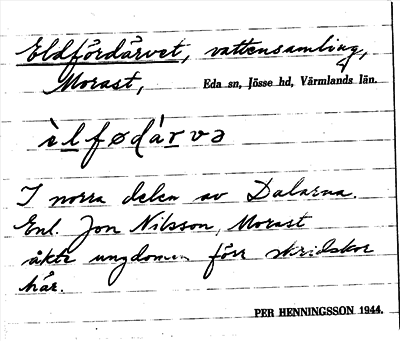 Eldfördärvet, vattensamling,
Morast, Eda sn, Jösse hd, Värmlands län.
ìlfødàrvə
I norra delen av Dalarna.
Enl. Jon Nilsson, Morast
åkte ungdomen förr skridskor
här.
PER HENNINGSSON 1944.